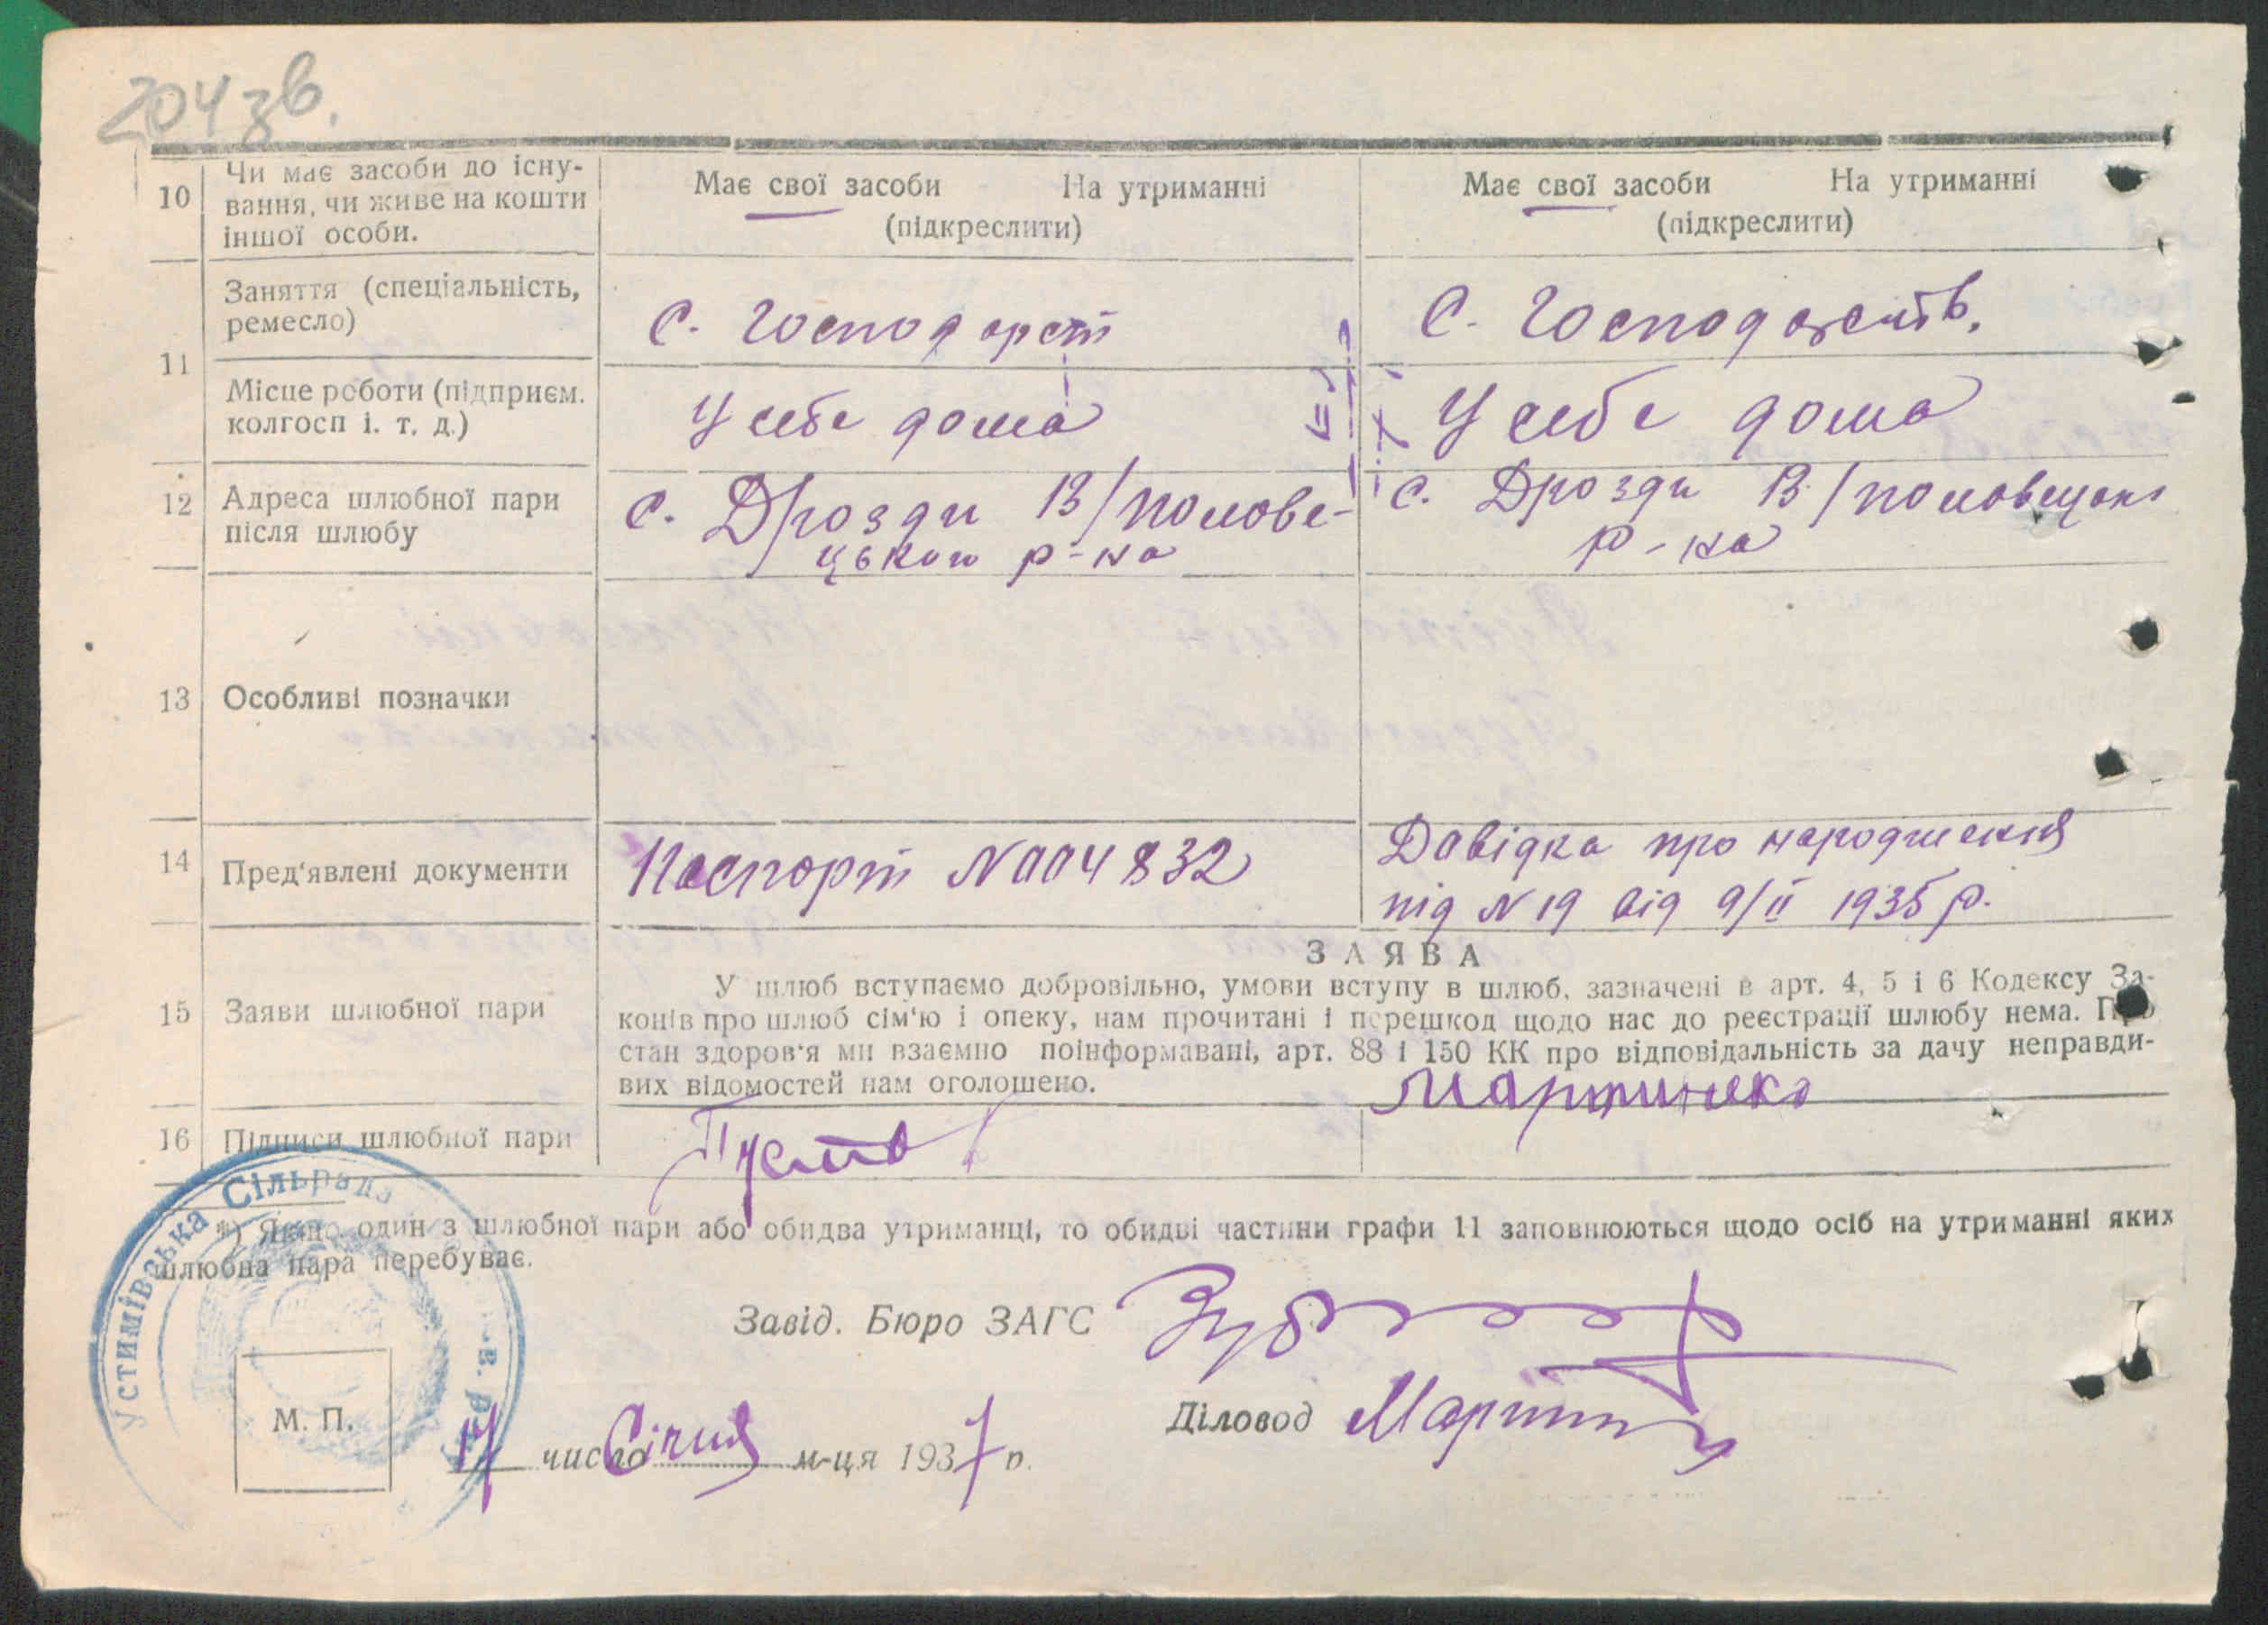 204 зв.
10
Чи має засоби до існу-
вання, чи живе на кошти
іншої особи.
Має свої засоби На утриманні
(підкреслити)
Має свої засоби На утриманні
(підкреслити)
11
Заняття (спеціальність,
ремесло)
С. Господарст
С. Господарств.
Місце роботи (підприєм.
колгосп і. т. д.)
У себе дома
У себе дома
12
Адреса шлюбної пари
після шлюбу
С. Дрозди В/полове-
цького р-на
С. Дрозди В/половецьк
р-на
13
Особливі позначки
14
Пред'явлені документи
Паспорт N 004832
Довідка про народження
під N 19 від 9/II 1935 р.
15
Заяви шлюбної пари
ЗАЯВА
У шлюб вступаємо добровільно, умови вступу в шлюб, зазначені в арт. 4, 5 і 6 Кодексу За-
конів про шлюб сім'ю і опеку, нам прочитані і перешкод щодо нас до реєстрації шлюбу нема. Про
стан здоров'я ми взаємно поінформавані, арт. 88 і 150 КК про відповідальність за дачу неправди-
вих відомостей нам оголошено.
16
Підписи шлюбної пари
Мартиненко
*) Якщо один з шлюбної пари або обидва утриманці, то обидві частини графи 11 заповнюються щодо осіб на утриманні яких
шлюбна пара перебуває.
Устимівська Сільрада
Завід. Бюро ЗАГС
Діловод
М. П.
17 число Січня м-ця 1937 р.